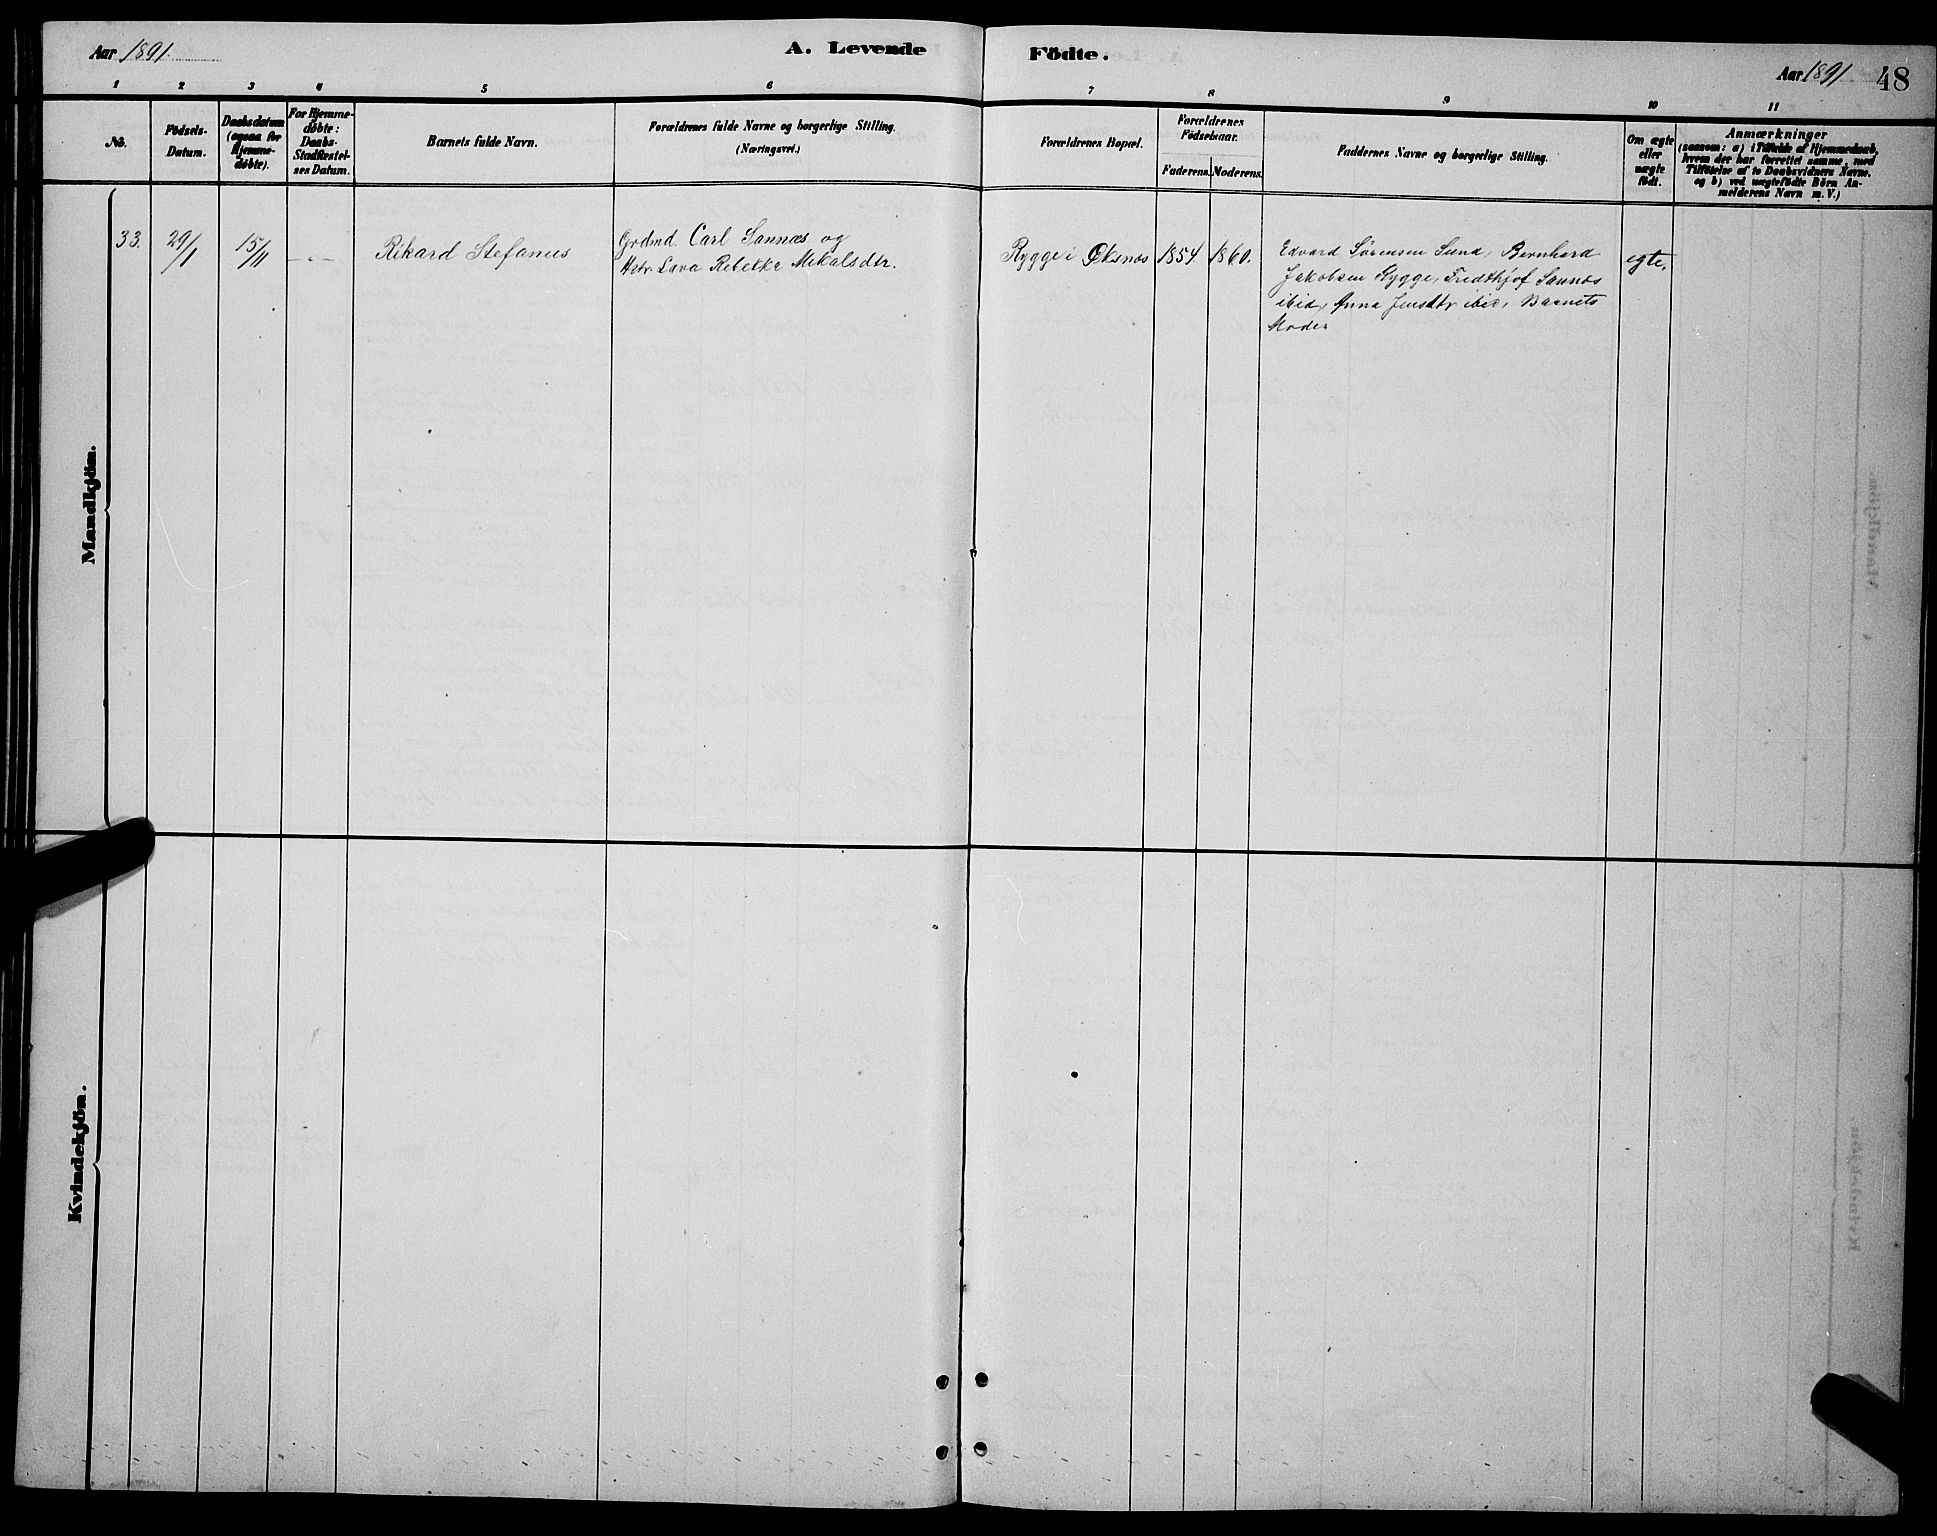 Aar 1891.
A. Levende Födte.
Aar 1891
48
1 2 3 4 5 6 7 8 9 10 11
No.
Födsels-
Datum.
Daabsdatum
(ogsaa for
Hjemme-
döbte).
For Hjemme-
döbte:
Daabs-
Stadfæstel-
ses Datum.
Barnets fulde Navn.
Forældrenes fulde Navne og borgerlige Stilling.
(Næringsvei.)
Forældrenes Bopæl.
Forældrenes
Födselsaar.
Faderens. Moderens.
Faddernes Navne og borgerlige Stilling.
Om ægte
eller
uægte
födt.
Anmærkninger
(saasom: a) i Tilfælde af Hjemmedaab,
hvem der har forrettet samme, med
Tilföielse af to Daabsvidners Navne.
og b) ved uægtefödte Börn An-
melderens Navn m. V.)
Mandkjön.
33. 29/1 15/11 - " - Rikard Stefanus
Grdmd. Carl Sannæs og
Hstr. Lava Rebekka Mikalsdtr.
Rygge i Øksnæs 1854 1860.
Edvard Sørensen Sund, Bernhard
Jakobsen Rygge, Fredthjof Sannæs
ibid, Anna Jensdtr ibid, Barnets
Moder
egte.
Kvindekjön.